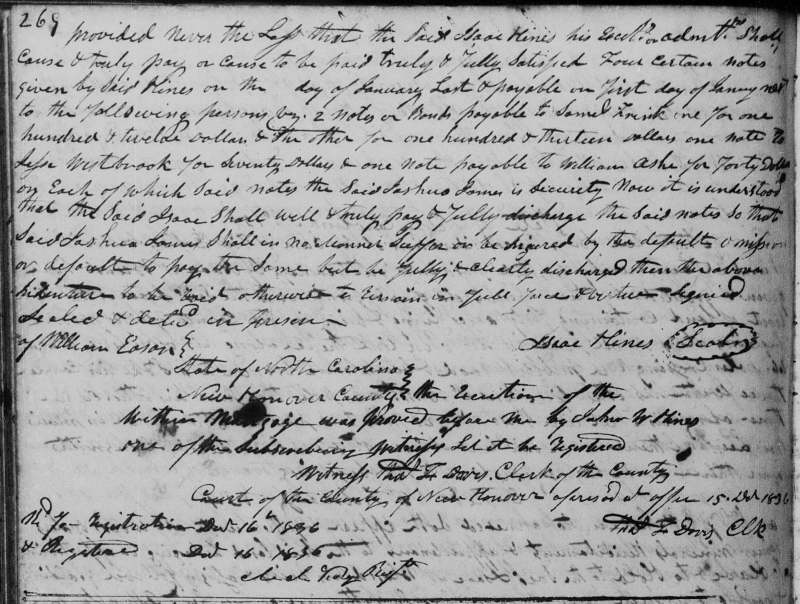 269
provided never the Less that the Said Isaac Hines his Exctrs or admtrs Shall
cause & truly pay or cause to be paid truly & fully Satisfied Four certain notes
given by Said Hines on the day of January Last & payable on first day of Janry next
to the following persons viz. 2 notes or Bonds payable to one for one
hundred & twelve Dollars & the other for one hundred & thirteen dollars one note to
Jesse Westbrook for Seventy Dollars & one note payable to William Ashe for Forty Dolls
on Each of which Said notes the Said Joshua James is Security Now it is understood
that the Said Isaac Shall well & truly pay & fully discharge the Said notes So that
Said Joshua James Shall in no Manner Suffer or be injured by the default omission
or default to pay the Same but be fully & clearly discharged then the above
Indenture to be Void otherwise to remain in full force & virtue Signed
Sealed & deld in presen
of William Eason } Isaac Hines (Seal)
State of North Carolina }
New Hanover County } the Execution of the
Within Mortgage was proved before me by W Hines
one of the Subscribing Witness Let it be registered
Witness Thos F Davis Clerk of the County
Court of the County of New Hanover aforesd at office 15 Decr 1836
Thos F Davis Clk
Rd for registration Decr 16th 1836
& Registered Decr 16 1836